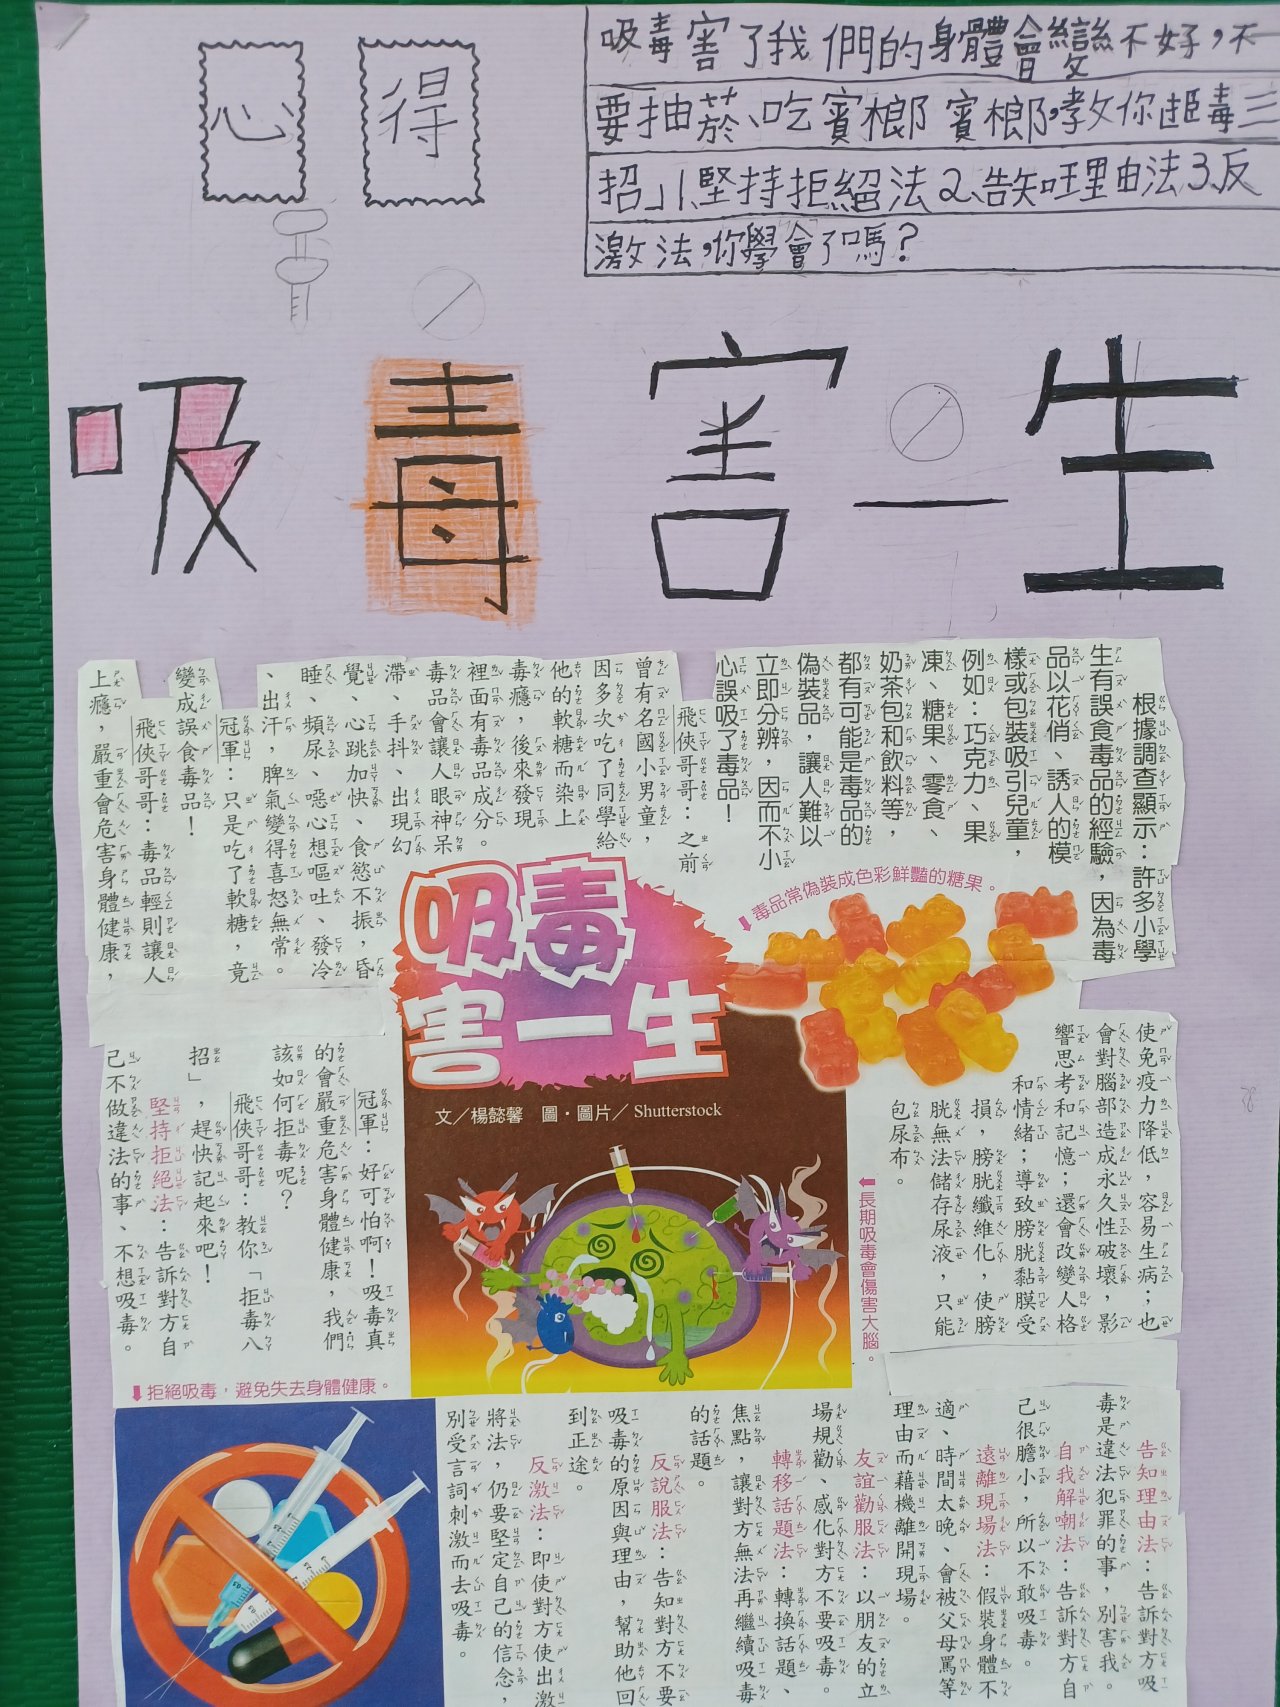 心得
吸毒害了我們的身體會變不好，不
要抽菸、吃賓榔賓榔，教你趉毒三
招」1、堅持拒絕法2、告知理由法3、反
激法，你學會了嗎？
吸毒害一生
根據調查顯示：許多小學
生有誤食毒品的經驗，因為毒
品以花俏、誘人的模
樣或包裝吸引兒童，
例如：巧克力、果
凍、糖果、零食、
奶茶包和飲料等，
都有可能是毒品的
偽裝品，讓人難以
立即分辨，因而不小
心誤吸了毒品！
飛俠哥哥：之前
曾有名國小男童，
因多次吃了同學給
他的軟糖而染上
毒癮，後來發現
裡面有毒品成分。
毒品會讓人眼神呆
滯、手抖、出現幻
覺、心跳加快、食慾不振，昏
睡、頻尿、噁心想嘔吐、發冷
、出汗，脾氣變得喜怒無常。
冠軍：只是吃了軟糖，竟
變成誤食毒品！
飛俠哥哥：毒品輕則讓人
上癮，嚴重會危害身體健康，
⬇毒品常偽裝成色彩鮮豔的糖果。
吸毒
害一生
文／楊懿馨　圖・圖片／Shutterstock
使免疫力降低，容易生病；也
會對腦部造成永久性破壞，影
響思考和記憶；還會改變人格
和情緒；導致膀胱黏膜受
損，膀胱纖維化，使膀
胱無法儲存尿液，只能
包尿布。
⬅長期吸毒會傷害大腦。
冠軍：好可怕啊！吸毒真
的會嚴重危害身體健康，我們
該如何拒毒呢？
飛俠哥哥：教你「拒毒八
招」，趕快記起來吧！
堅持拒絕法：告訴對方自
己不做違法的事、不想吸毒。
⬇拒絕吸毒，避免失去身體健康。
告知理由法：告訴對方吸
毒是違法犯罪的事，別害我。
自我解嘲法：告訴對方自
己很膽小，所以不敢吸毒。
遠離現場法：假裝身體不
適、時間太晚、會被父母罵等
理由而藉機離開現場。
友誼勸服法：以朋友的立
場規勸、感化對方不要吸毒。
轉移話題法：轉換話題、
焦點，讓對方無法再繼續吸毒
的話題。
反說服法：告知對方不要
吸毒的原因與理由，幫助他回
到正途。
反激法：即使對方使出激
將法，仍要堅定自己的信念，
別受言詞刺激而去吸毒。